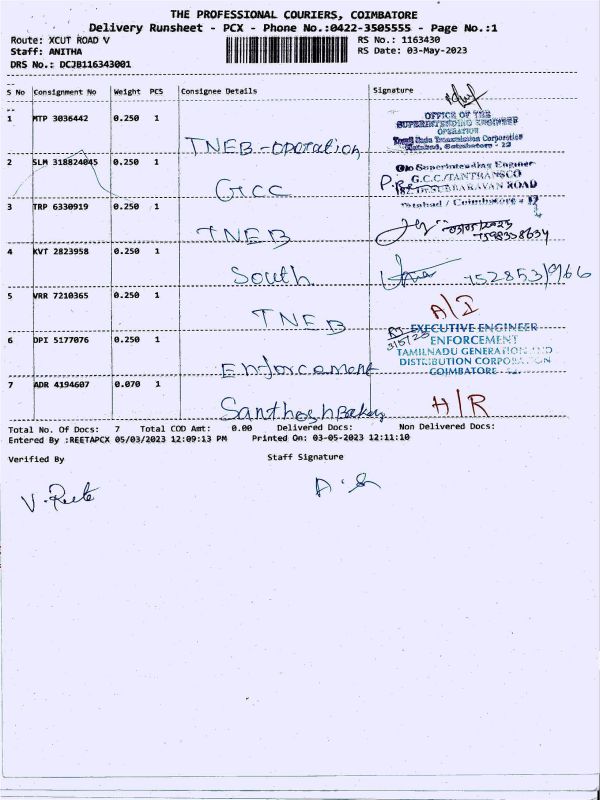 THE PROFESSIONAL COURIERS, COIMBATORE
Delivery Runsheet - PCX - Phone No.:0422-3505555 - Page No.:1
Route: XCUT ROAD V RS No.: 1163430
Staff: ANITHA RS Date: 03-May-2023
DRS No.: DCJB116343001
S No Consignment No Weight PCS Consignee Details Signature
1 MTP 3036442 0.250 1 TNEB-operation
OFFICE OF THE
SUPERINTENDING ENGINEER
OPERATION
Tamil Nadu Transmission Corporation
Tatabad, Coimbatore - 12
2 SLM 318824045 0.250 1 GCC
O/o Superintending Engineer
G.C.C./TANTRANSCO
182, Dr.SUBBARAYAN ROAD
Tatabad / Coimbatore - 12
3 TRP 6330919 0.250 1 TNEB
03/05/2023
4 KVT 2823958 0.250 1 South
5 VRR 7210365 0.250 1 TNEB
A/I
6 DPI 5177076 0.250 1 Enforcement
EXECUTIVE ENGINEER
ENFORCEMENT
TAMILNADU GENERATION AND
DISTRIBUTION CORPORATION
COIMBATORE
7 ADR 4194607 0.070 1 Santhosh Bakery H/R
Total No. Of Docs: 7 Total COD Amt: 0.00 Delivered Docs: Non Delivered Docs:
Entered By :REETAPCX 05/03/2023 12:09:13 PM Printed On: 03-05-2023 12:11:10
Verified By Staff Signature
V. Reeta